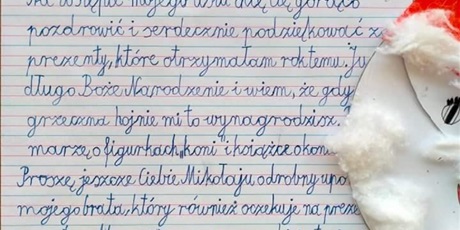 mojego chcę cię gorąco
pozdrowić i serdecznie podziękować za
prezenty, które otrzymałam rok temu. Ju
długo Boże Narodzenie i wiem, że gdy
grzeczna hojnie mi to wynagrodzisz.
marzę o figurkach „koni" i książce o koni
Proszę, jeszcze Ciebie Mikołaju o drobny upo
mojego brata, który również oczekuje na preze